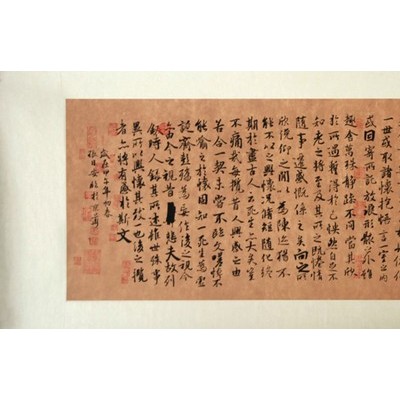 一世或取諸懷抱悟言一室之內
或因寄所託放浪形骸之外雖
趣舍萬殊靜躁不同當其欣
於所遇暫得於己快然自足不
知老之將至及其所之既惓情
隨事遷感慨係之矣向之所
欣俛仰之閒以為陳迹猶不
能不以之興懷況脩短隨化終
期於盡古人云死生亦大矣豈
不痛哉每攬昔人興感之由
若合一契未嘗不臨文嗟悼不
能喻之於懷固知一死生為虛
誕齊彭殤為妄作後之視今
亦由今之視昔悲夫故列
敘時人錄其所述雖世殊事
異所以興懷其致一也後之攬
者亦將有感於斯文